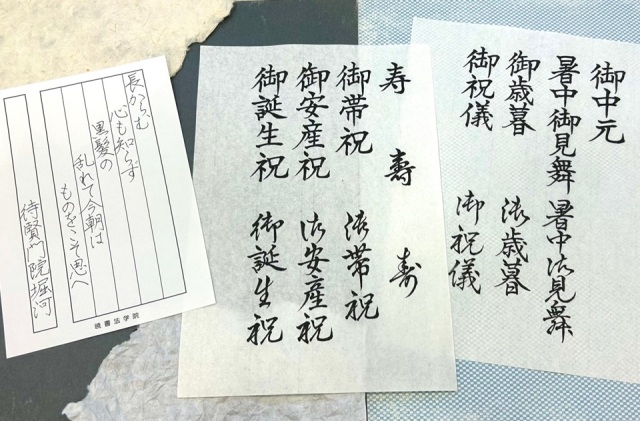 御中元
暑中御見舞 暑中御見舞
御歳暮 御歳暮
御祝儀 御祝儀
寿 壽 寿
御帯祝 御帯祝
御安産祝 御安産祝
御誕生祝 御誕生祝
長からむ
心も知らず
黒髪の
乱れて今朝は
ものをこそ思へ
待賢門院堀河
暁書法学院